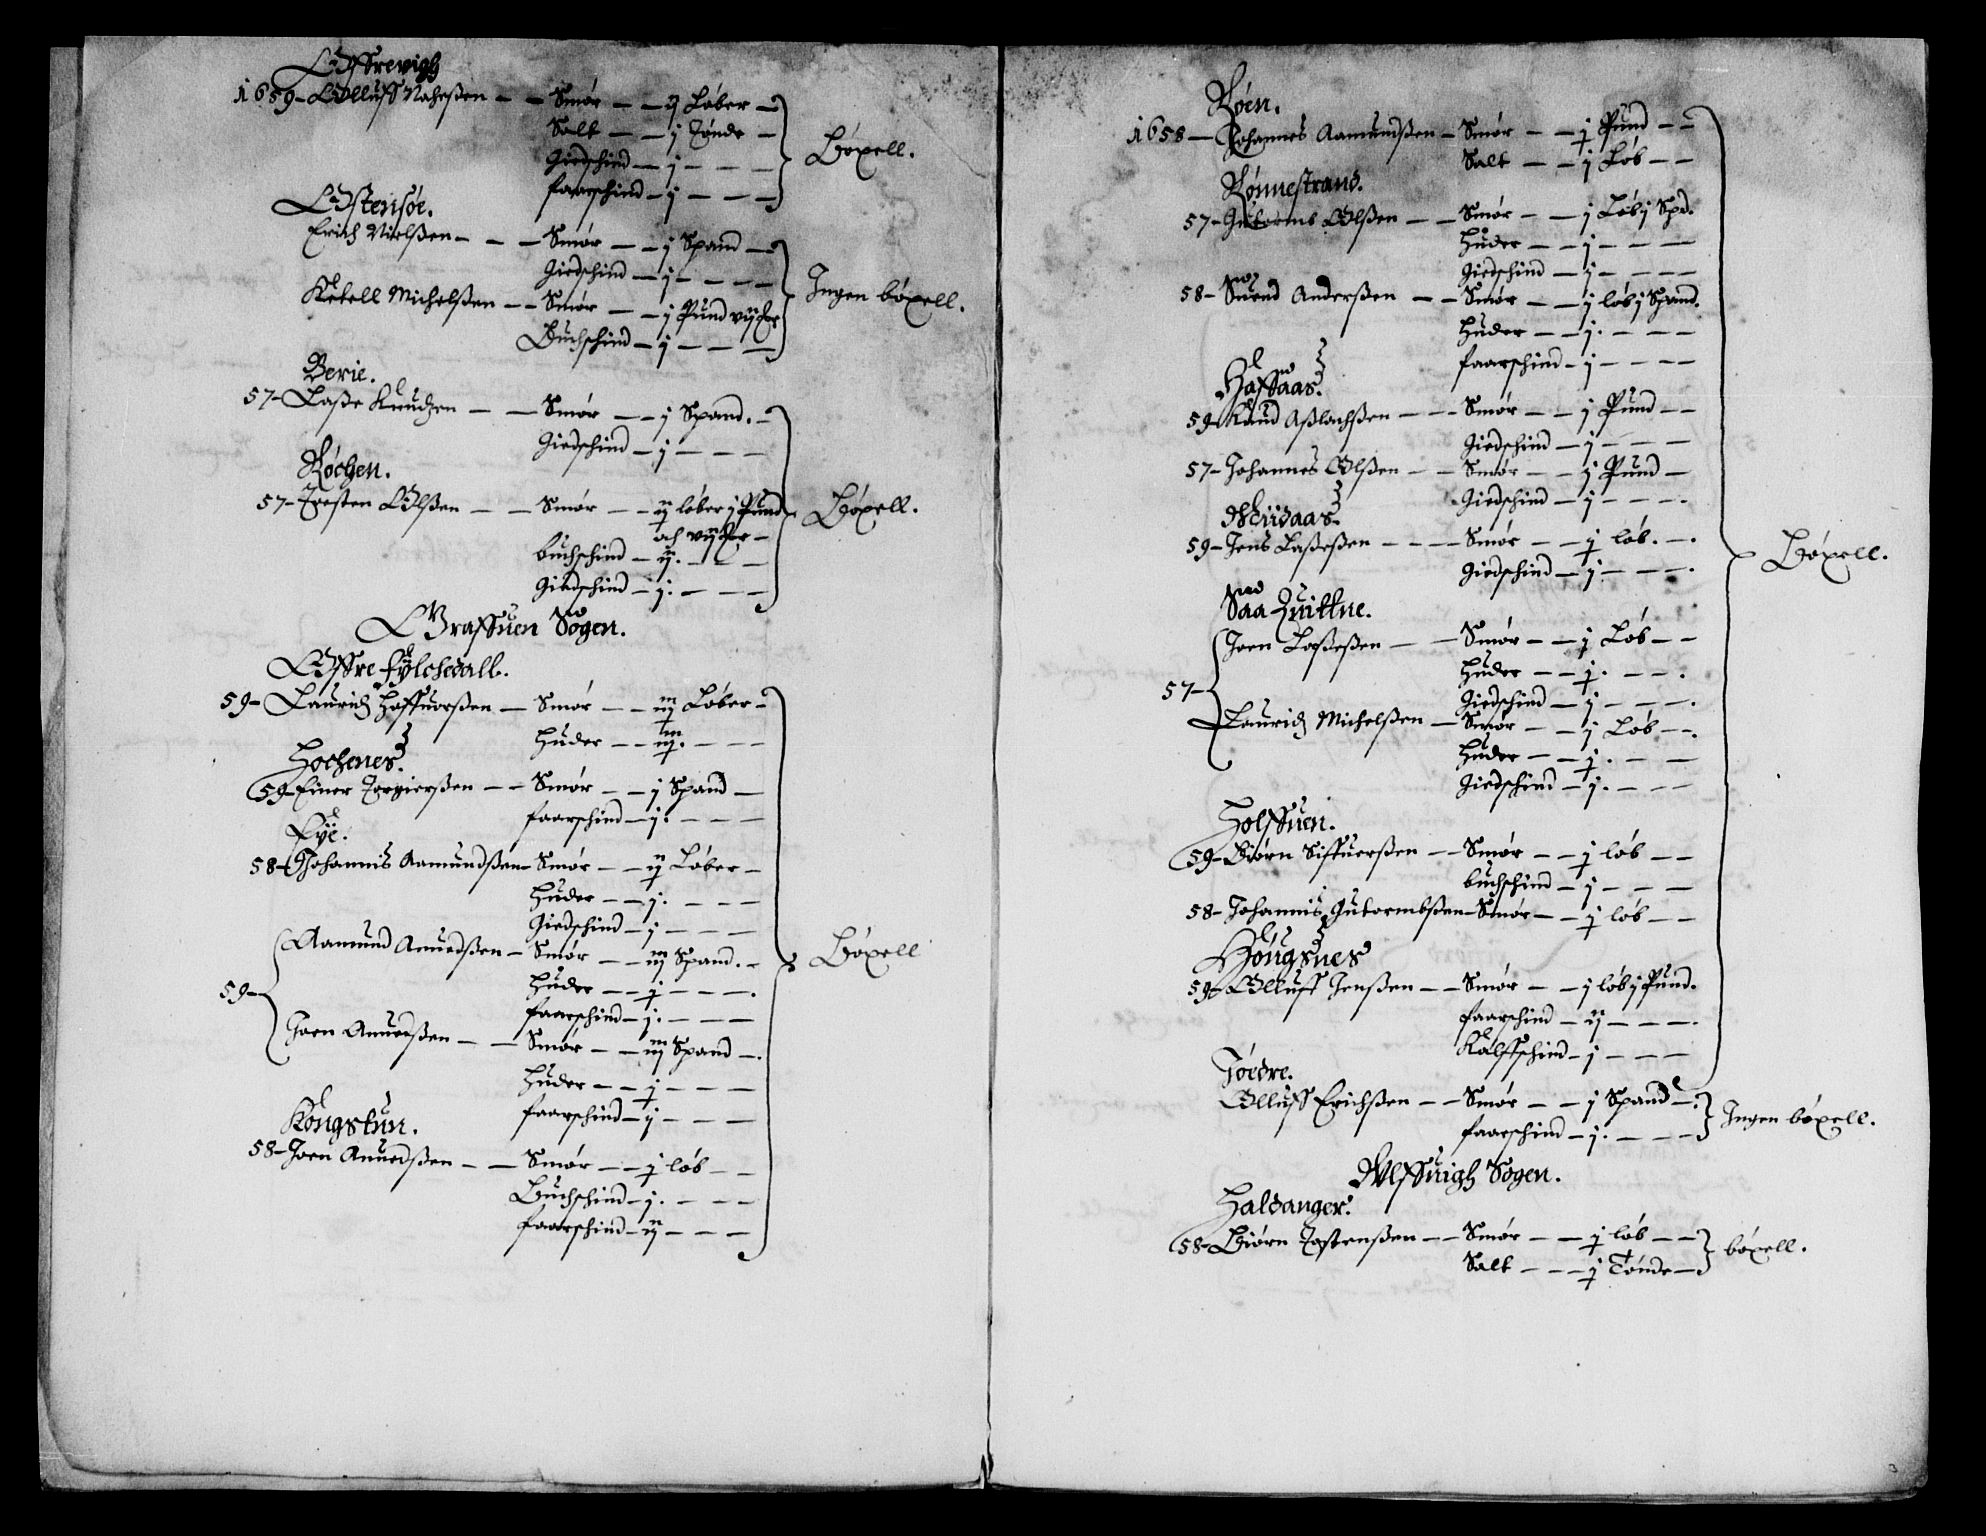 Offrevigh
1659 – Olluff Nahesßen – – Smør – – ij Løber –
Salt – – j Tønde –
Giedschind – j – – –
faarschind – j – – –
Bøxell.
Ostensøe.
Erich Nielsßen – – – Smør – – j Spand –
Giedschind – j – – – –
Ketell Michelsßen – – Smør – – j Pund vij
Buchschind – j – – – –
Ingen bøxell.
Berie.
57 – Laße Knudzen – – Smør – – j Spand. –
Giedschind – j – – –
Røchen.
57 – Torsten Olsßen – – Smør – – ij løber j Pund
och vij
buchschind – ij. – – –
Giedschind – j. – – –
Bøxell.
Graffuen Sogen.
Offre fylchedall.
59 – Lauridz Haffuorsßen – Smør – – iij Løber –
Huder – – iij. – – –
Hochenes.
59 – Einer Torgiersßen – – Smør – – j Spand –
faarschind – j. – – –
Eye.
58 – Johannis Aamundsßen – Smør – – ij Løber –
Huder – – j. – – –
Giedschind – j – – –
Aamund Anuedsßen – Smør – – iij Spand. –
Huder – – j – – –.
faarschind – j. – – –
59 –
Joen Anuedsßen – – Smør – – iij Spand –.
Huder – – j – – –
faarschind – j – – –
Kongstun.
58 – Joen Anuedsßen – – Smør – – j løb – –
Buchschind – j. – – –
faarschind – ij – – –
Bøxell
Røen.
1658 – Johannes Aamundsßen – Smør – – j Pund – –
Salt – – j Løb – –
Rønnestrand.
57 – Gutormb Olsßen – – Smør – – j Løb j Spd.
Huder – – j – – –
Giedschind – j – – –
58 – Suend Andersßen – – Smør – – j løb j Spand.
Huder – – j. – – –
faarschind – j – – –
Haffaas.
59 – Knud Aßlachsßen – – Smør – – j Pund – –
Giedschind – j – – –
57 – Johannes Olsßen – – Smør – – j Pund –
Giedschind – j – – –.
Neiidaas.
59 – Jens Laßesßen – – – Smør – – j løb. –.
Giedschind – j – – –.
Saa Quittne.
Joen Laßesßen – – Smør – – j Løb – –
Huder – – j. – – –.
Giedschind – j – – –.
57 –
Lauridz Michelsßen – Smør – – j Løb – –.
Huder – – j. – – –
Giedschind – j. – – –
Holffuen.
59 – Biørn Siffuersßen – – Smør – – j løb – –
buchschind – j – – –
58 – Johannis Gutormbsßen – Smør – – j løb – –
Kongsnes
59 – Olluff Jensßen – – Smør – – j løb j Pund.
faarschind – ij – – –.
Kalffschind – j – – –
Bøxell.
Joedre.
Olluff Erichsßen – – Smør – – j Spand –.
faarschind – j. – – –
Ingen bøxell.
Vlffuigh Sogen.
Haldanger.
58 – Biørn Jostensßen – – Smør – – j løb – –
Salt – – – j Tønde –
bøxell.
3